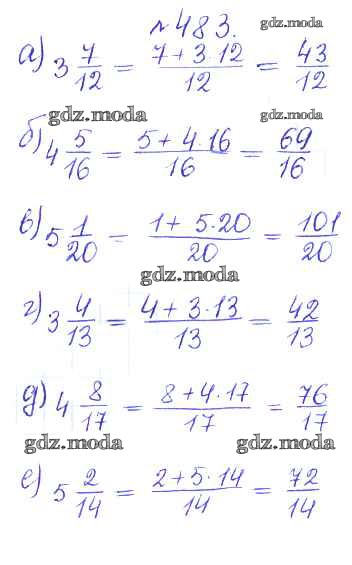 №483. gdz.moda
а) 3 7/12 = (7+3·12)/12 = 43/12
gdz.moda gdz.moda
б) 4 5/16 = (5+4·16)/16 = 69/16
в) 5 1/20 = (1+5·20)/20 = 101/20
gdz.moda
г) 3 4/13 = (4+3·13)/13 = 42/13
д) 4 8/17 = (8+4·17)/17 = 76/17
gdz.moda gdz.moda
е) 5 2/14 = (2+5·14)/14 = 72/14